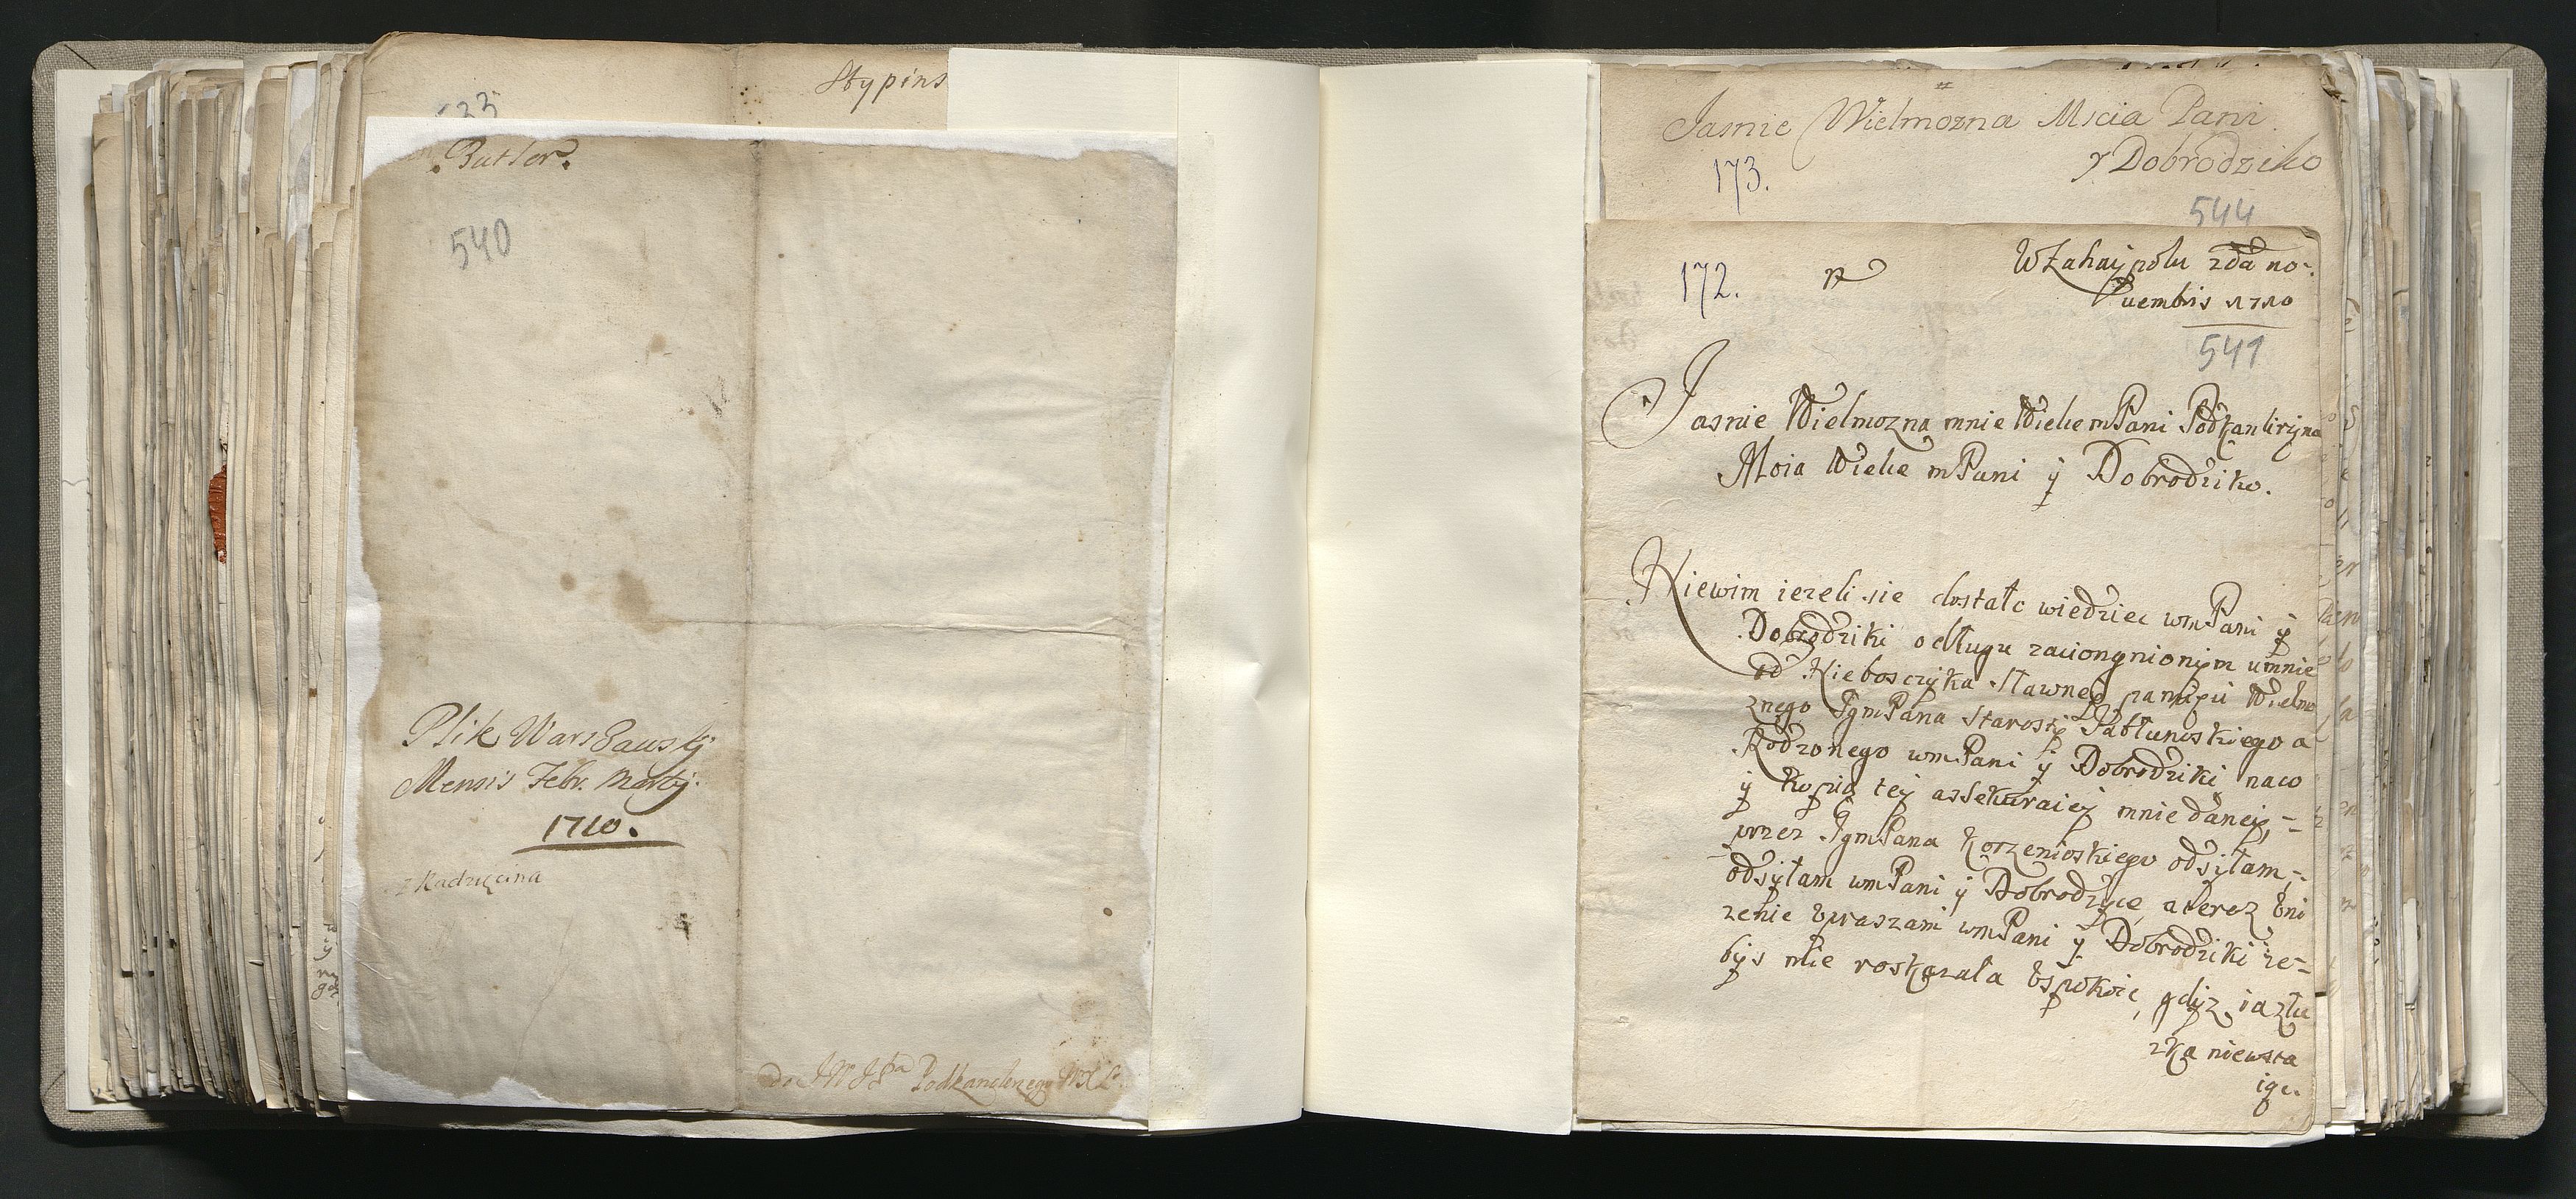 Stypins
533
Butler.
540
Plik Warszawsky
Mensis Febr. Martij.
1710.
z Radzięcina
do JW JPa Podkanclerzego WXL.
Jasnie Wielmozna Mscia Pani
y Dobrodziko
173.
544
172.
WZahaypolu 2da no-
uembris 1710
541
Jasnie Wielmozna mnie Wielce mPani Podkanliryna
Moia Wielce mPani ÿ Dobrodziko.
Niewim iezeli sie dostało wiedziec wmPani ÿ
Dobrodziki odługu zaciongnionym umnie
od Niebosczyka sławneÿ pamięci Wielmo
znego JgmPana Starosty Jabłunoskiego a
Rodzonego wmPani ÿ Dobrodziki, naco
ÿ kopią teÿ assekuraieÿ mnie daneÿ,
przez JgmPana Korzenioskiego odsyłam,
odsyłam wmPani ÿ Dobrodzyce, aterez Uni
zenie Upraszam wmPani ÿ Dobrodziki ze-
bÿs mie roskazała Uspokoic, gdyz ia złu
zką niewsta
ige.